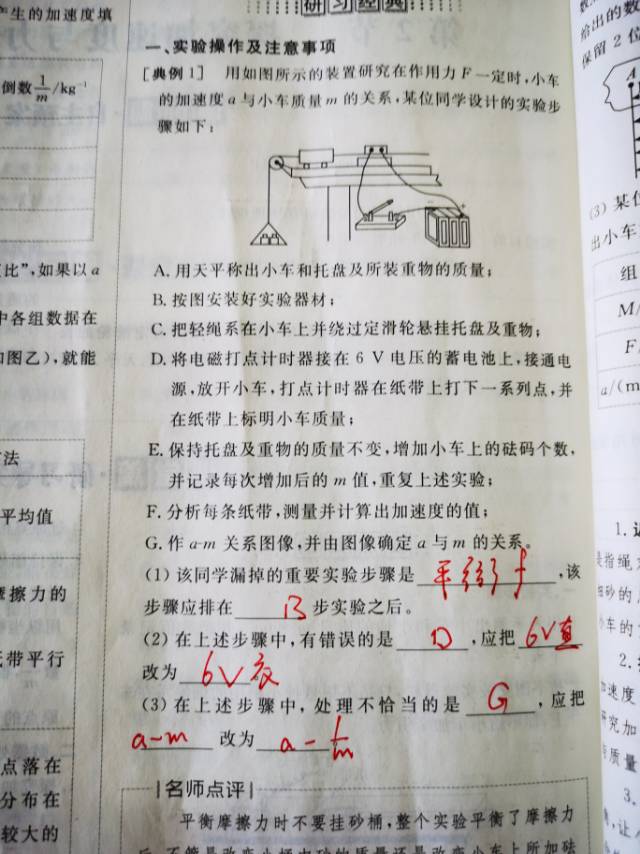 产生的加速度填
研习经典
一、实验操作及注意事项
[典例1] 用如图所示的装置研究在作用力 F 一定时,小车
的加速度 a 与小车质量 m 的关系,某位同学设计的实验步
骤如下:
A. 用天平称出小车和托盘及所装重物的质量;
B. 按图安装好实验器材;
C. 把轻绳系在小车上并绕过定滑轮悬挂托盘及重物;
D. 将电磁打点计时器接在 6 V 电压的蓄电池上,接通电
源,放开小车,打点计时器在纸带上打下一系列点,并
在纸带上标明小车质量;
E. 保持托盘及重物的质量不变,增加小车上的砝码个数,
并记录每次增加后的 m 值,重复上述实验;
F. 分析每条纸带,测量并计算出加速度的值;
G. 作 a-m 关系图像,并由图像确定 a 与 m 的关系。
(1) 该同学漏掉的重要实验步骤是 平衡 f ,该
步骤应排在 B 步实验之后。
(2) 在上述步骤中,有错误的是 D ,应把 6V直
改为 6V交
(3) 在上述步骤中,处理不恰当的是 G ,应把
a-m 改为 a-1/m
名师点评
平衡摩擦力时不要挂砂桶,整个实验平衡了摩擦力
倒数 1/m /kg⁻¹
比”,如果以 a
中各组数据在
图乙),就能
法
平均值
摩擦力的
纸带平行
点落在
分布在
较大的
给出的数
保留 2 位
A
(3) 某位
出小车
组
M/
F
a/(m
1.
是指绳
2.
加速度
研究加
质量
3.
,让